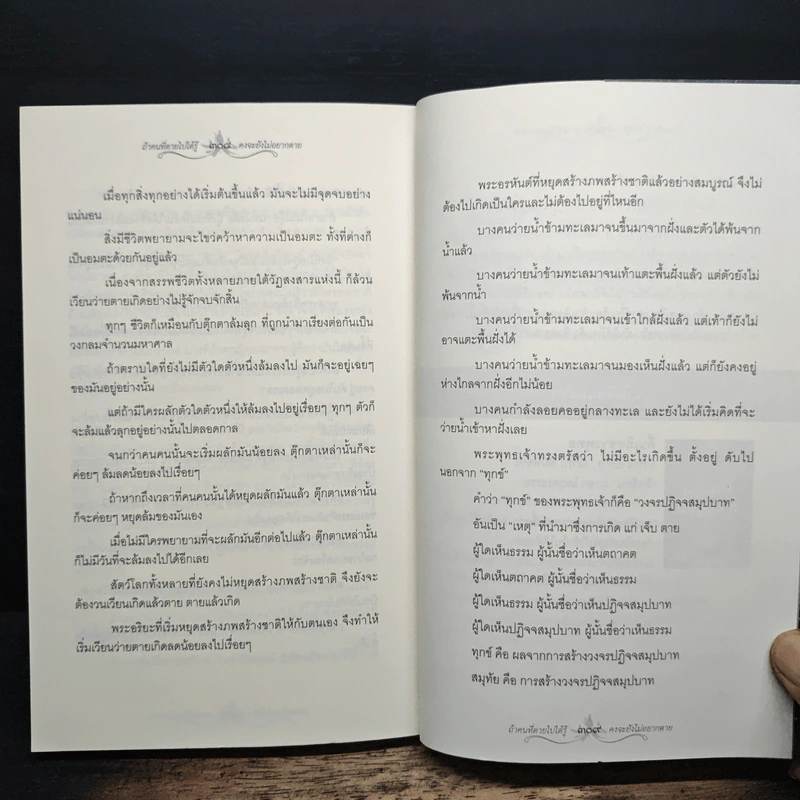 ถ้าคนที่ตายไปได้รู้ ๓๐๘ คงจะยังไม่อยากตาย
เมื่อทุกสิ่งทุกอย่างได้เริ่มต้นขึ้นแล้ว มันจะไม่มีจุดจบอย่าง
แน่นอน
สิ่งมีชีวิตพยายามจะไขว่คว้าหาความเป็นอมตะ ทั้งที่ต่างก็
เป็นอมตะด้วยกันอยู่แล้ว
เนื่องจากสรรพชีวิตทั้งหลายภายใต้วัฏสงสารแห่งนี้ ก็ล้วน
เวียนว่ายตายเกิดอย่างไม่รู้จักจบจักสิ้น
ทุกๆ ชีวิตก็เหมือนกับตุ๊กตาล้มลุก ที่ถูกนำมาเรียงต่อกันเป็น
วงกลมจำนวนมหาศาล
ถ้าตราบใดที่ยังไม่มีตัวใดตัวหนึ่งล้มลงไป มันก็จะอยู่เฉยๆ
ของมันอยู่อย่างนั้น
แต่ถ้ามีใครผลักตัวใดตัวหนึ่งให้ล้มลงไปอยู่เรื่อยๆ ทุกๆ ตัวก็
จะล้มแล้วลุกอยู่อย่างนั้นไปตลอดกาล
จนกว่าคนคนนั้นจะเริ่มผลักมันน้อยลง ตุ๊กตาเหล่านั้นก็จะ
ค่อยๆ ล้มลดน้อยลงไปเรื่อยๆ
ถ้าหากถึงเวลาที่คนคนนั้นได้หยุดผลักมันแล้ว ตุ๊กตาเหล่านั้น
ก็จะค่อยๆ หยุดล้มของมันเอง
เมื่อไม่มีใครพยายามที่จะผลักมันอีกต่อไปแล้ว ตุ๊กตาเหล่านั้น
ก็ไม่มีวันที่จะล้มลงไปได้อีกเลย
สัตว์โลกทั้งหลายที่ยังคงไม่หยุดสร้างภพสร้างชาติ จึงยังจะ
ต้องวนเวียนเกิดแล้วตาย ตายแล้วเกิด
พระอริยะที่เริ่มหยุดสร้างภพสร้างชาติให้กับตนเอง จึงทำให้
เริ่มเวียนว่ายตายเกิดลดน้อยลงไปเรื่อยๆ
พระอรหันต์ที่หยุดสร้างภพสร้างชาติแล้วอย่างสมบูรณ์ จึงไม่
ต้องไปเกิดเป็นใครและไม่ต้องไปอยู่ที่ไหนอีก
บางคนว่ายน้ำข้ามทะเลมาจนขึ้นมาจากฝั่งและตัวได้พ้นจาก
น้ำแล้ว
บางคนว่ายน้ำข้ามทะเลมาจนเท้าแตะพื้นฝั่งแล้ว แต่ตัวยังไม่
พ้นจากน้ำ
บางคนว่ายน้ำข้ามทะเลมาจนเข้าใกล้ฝั่งแล้ว แต่เท้าก็ยังไม่
อาจแตะพื้นฝั่งได้
บางคนว่ายน้ำข้ามทะเลมาจนมองเห็นฝั่งแล้ว แต่ก็ยังคงอยู่
ห่างไกลจากฝั่งอีกไม่น้อย
บางคนกำลังลอยคออยู่กลางทะเล และยังไม่ได้เริ่มคิดที่จะ
ว่ายน้ำเข้าหาฝั่งเลย
พระพุทธเจ้าทรงตรัสว่า ไม่มีอะไรเกิดขึ้น ตั้งอยู่ ดับไป
นอกจาก “ทุกข์”
คำว่า “ทุกข์” ของพระพุทธเจ้าก็คือ “วงจรปฏิจจสมุปบาท”
อันเป็น “เหตุ” ที่นำมาซึ่งการเกิด แก่ เจ็บ ตาย
ผู้ใดเห็นธรรม ผู้นั้นชื่อว่าเห็นตถาคต
ผู้ใดเห็นตถาคต ผู้นั้นชื่อว่าเห็นธรรม
ผู้ใดเห็นธรรม ผู้นั้นชื่อว่าเห็นปฏิจจสมุปบาท
ผู้ใดเห็นปฏิจจสมุปบาท ผู้นั้นชื่อว่าเห็นธรรม
ทุกข์ คือ ผลจากการสร้างวงจรปฏิจจสมุปบาท
สมุทัย คือ การสร้างวงจรปฏิจจสมุปบาท
ถ้าคนที่ตายไปได้รู้ ๓๐๙ คงจะยังไม่อยากตาย